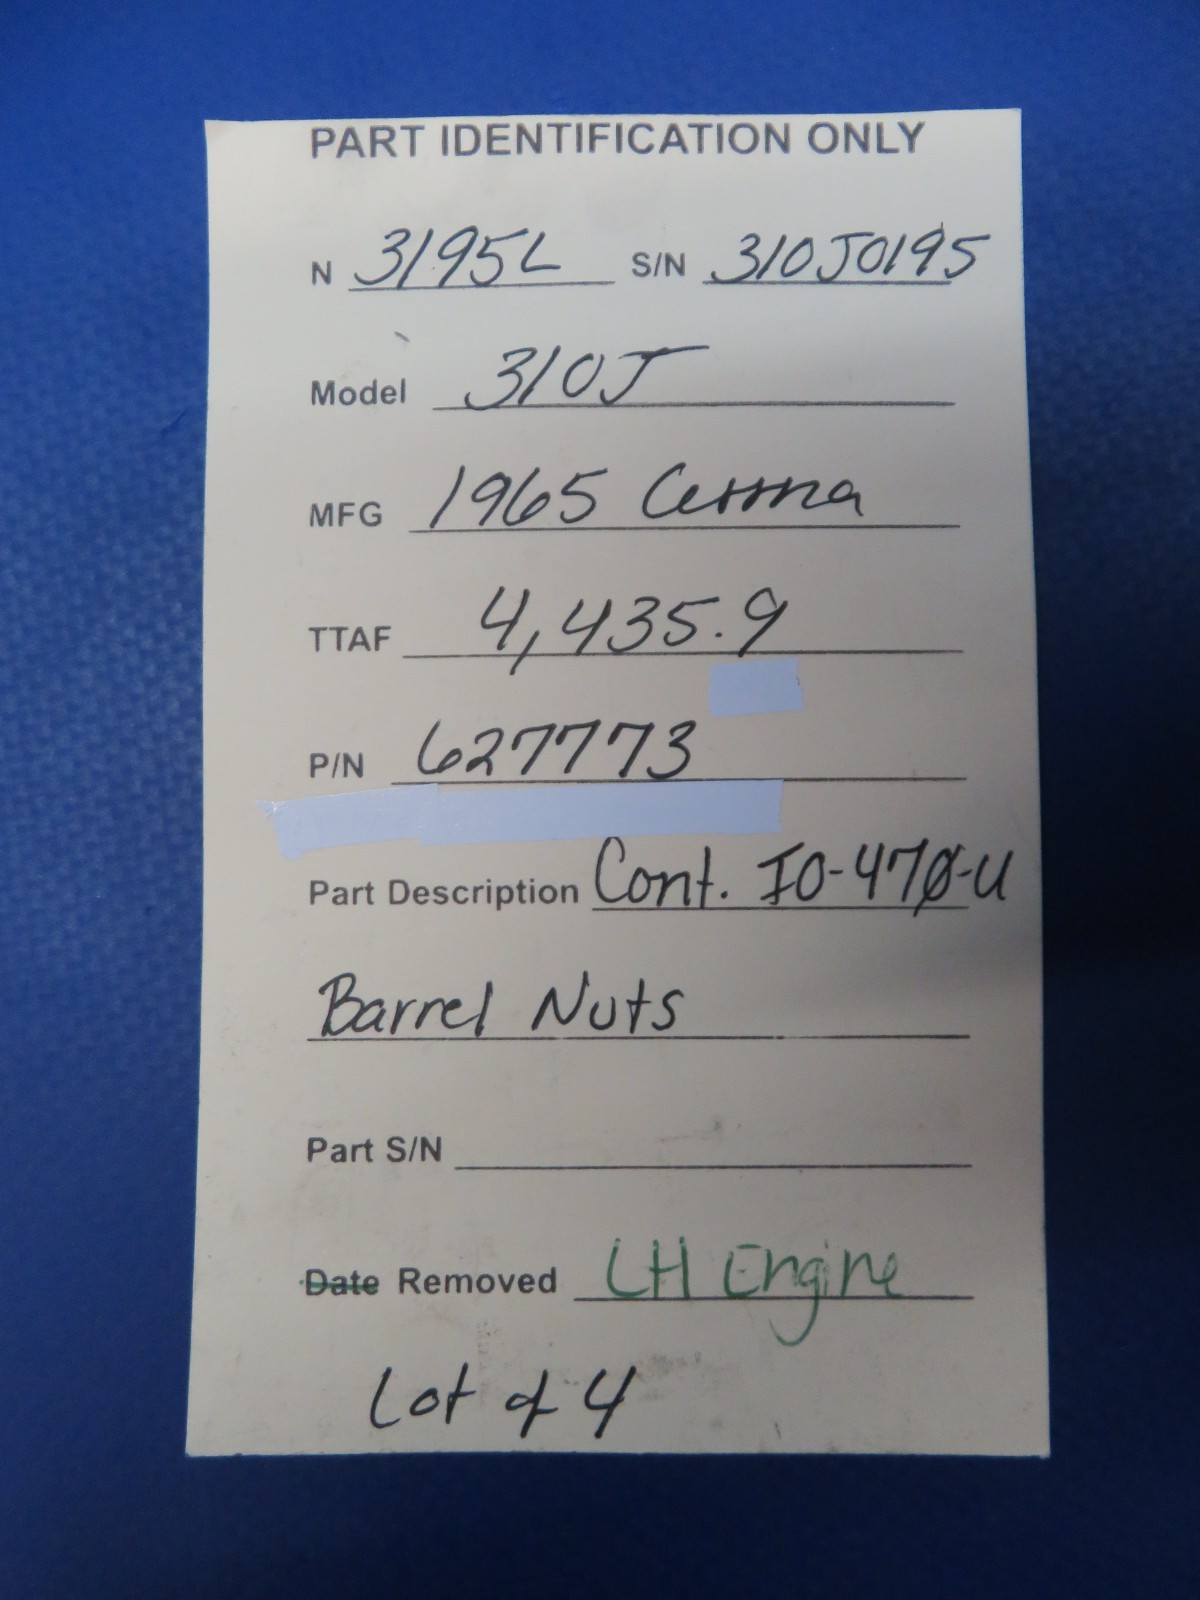 PART IDENTIFICATION ONLY
N 3195L S/N 310J0195
Model 310J
MFG 1965 Cessna
TTAF 4,435.9
P/N 627773
Part Description Cont. IO-470-U
Barrel Nuts
Part S/N
Date Removed LH Engine
Lot of 4